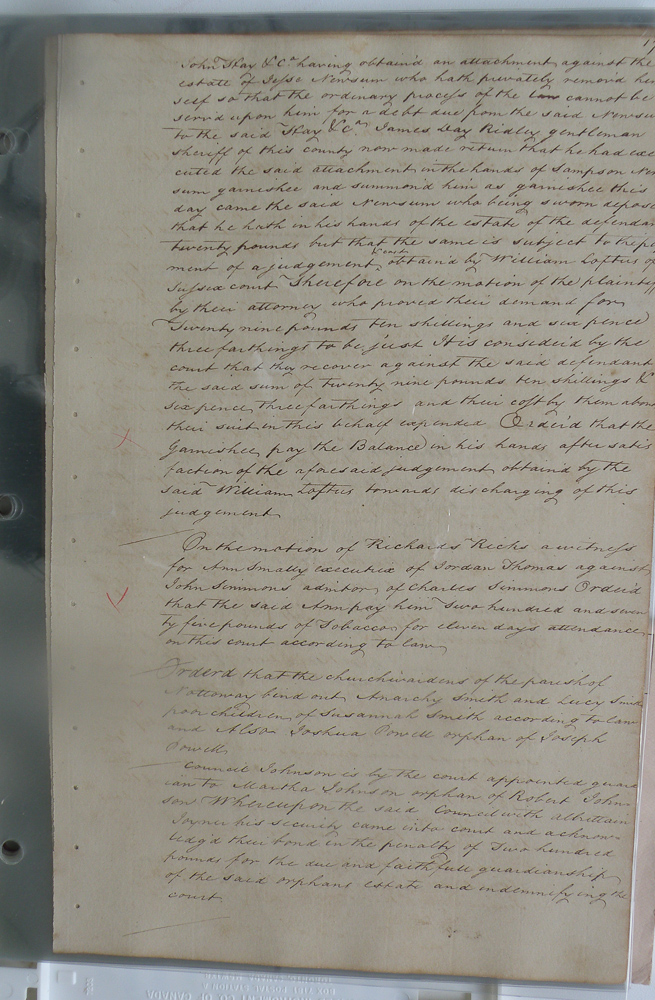 17
John Hay & Co. having obtain'd an attachment against the
estate of Jesse Newsum who hath privately remov'd him
self so that the ordinary process of the law cannot be
serv'd upon him for a debt due from the said Newsum
to the said Hay & Co. James Day Ridley gentleman
sheriff of this county now made return that he had exe
cuted the said attachment in the hands of Sampson New
sum garnishee and summon'd him as garnishee this
day came the said Newsum who being sworn depose
that he hath in his hands of the estate of the defendan
twenty pounds but that the same is subject to the pay
ment of a judgement obtain'd by William Loftus of
Sussex court Therefore on the motion of the plaintiff
by their attorney who proved their demand for
Twenty nine pounds ten shillings and six pence
three farthings to be just It is consider'd by the
court that they recover against the said defendant
the said sum of twenty nine pounds ten shillings &
six pence three farthings and their costs by them about
their suit in this behalf expended Order'd that the
Garnishee pay the Balance in his hands after satis
faction of the aforesaid judgement obtain'd by the
said William Loftus towards discharging of this
judgement
On the motion of Richards Ricks a witness
for Ann Smally executrix of Jordan Thomas against
John Simmons admtor. of Charles Simmons Order'd
that the said Ann pay him Two hundred and seven
ty five pounds of Tobacco for eleven days attendance
on this court according to law
Orderd that the churchwardens of the parish of
Nottoway bind out Anarchy Smith and Lucy Smith
poor children of Susannah Smith according to law
and Also Joshua Powell orphan of Joseph
Powell
Council Johnson is by the court appointed guard
ian to Martha Johnson orphan of Robert John-
son Whereupon the said Council with Albrittain
Joyner his security came into court and acknow-
ledg'd their bond in the penalty of Two hundred
pounds for the due and faithfull guardianship
of the said orphans estate and indemnifying the
court